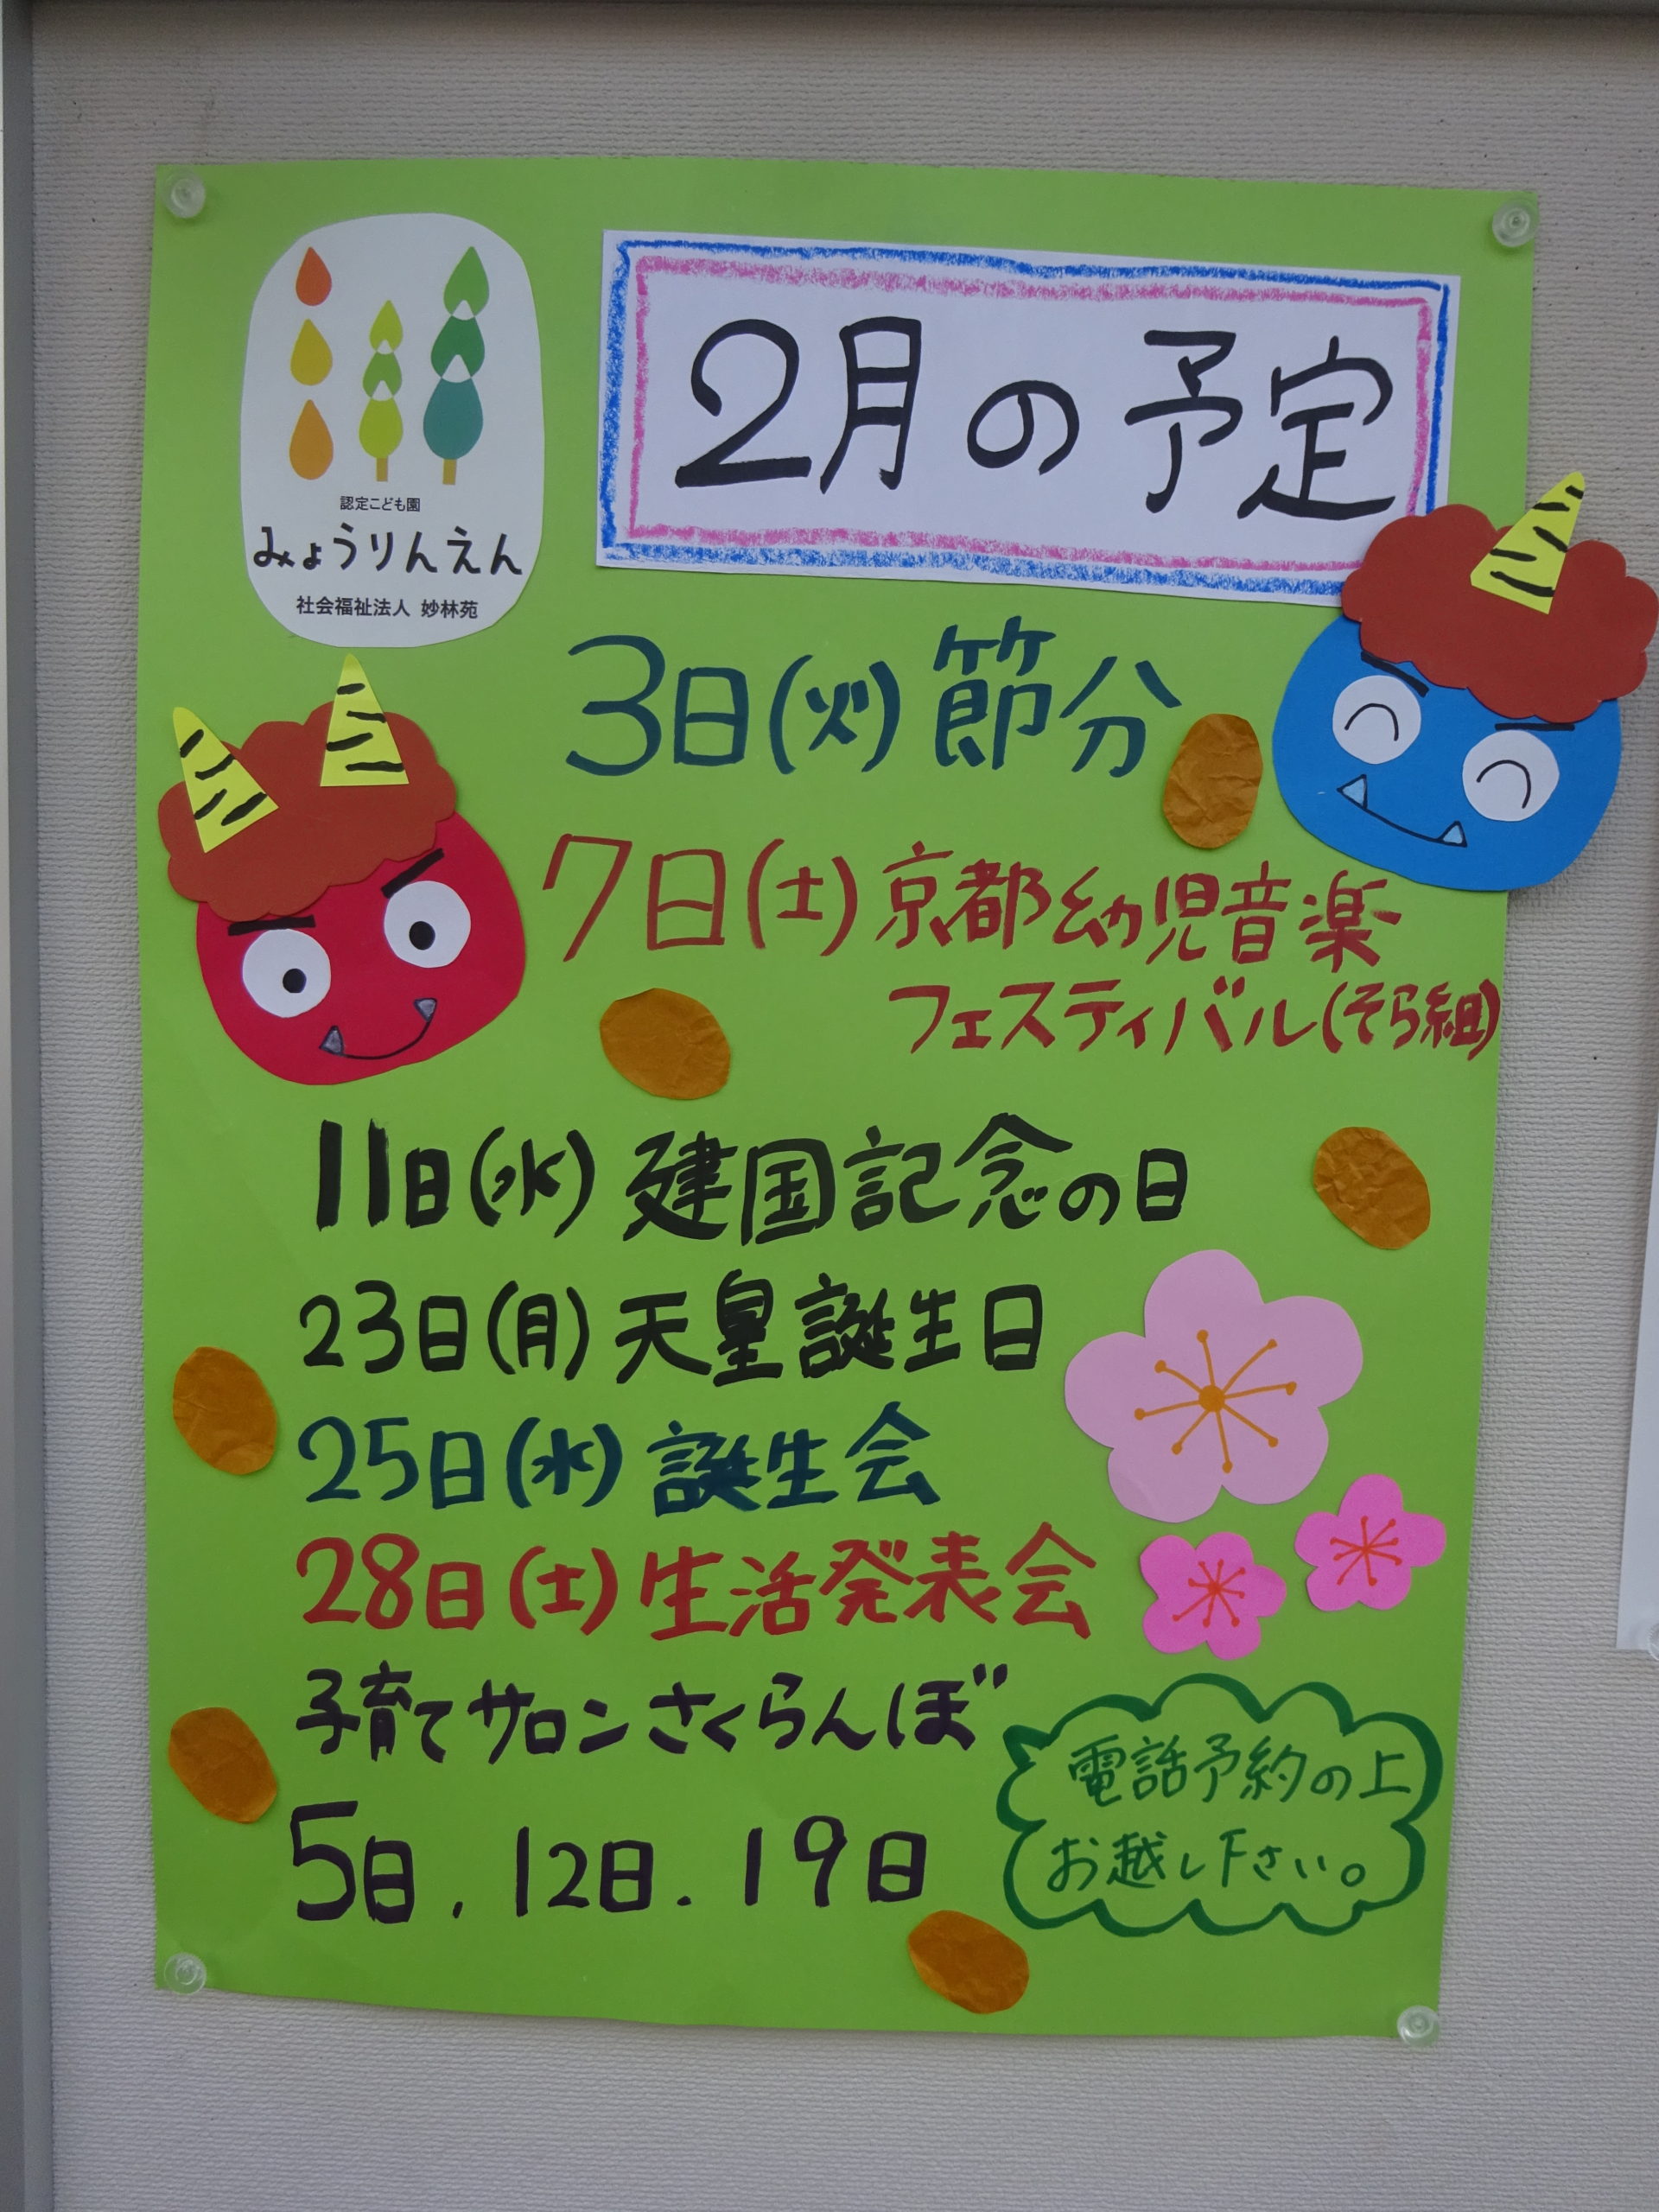 認定こども園
みょうりんえん
社会福祉法人 妙林苑
2月の予定
3日(火)節分
7日(土)京都幼児音楽
フェスティバル(そら組)
11日(水)建国記念の日
23日(月)天皇誕生日
25日(水)誕生会
28日(土)生活発表会
子育てサロンさくらんぼ
5日, 12日. 19日
電話予約の上
お越し下さい。